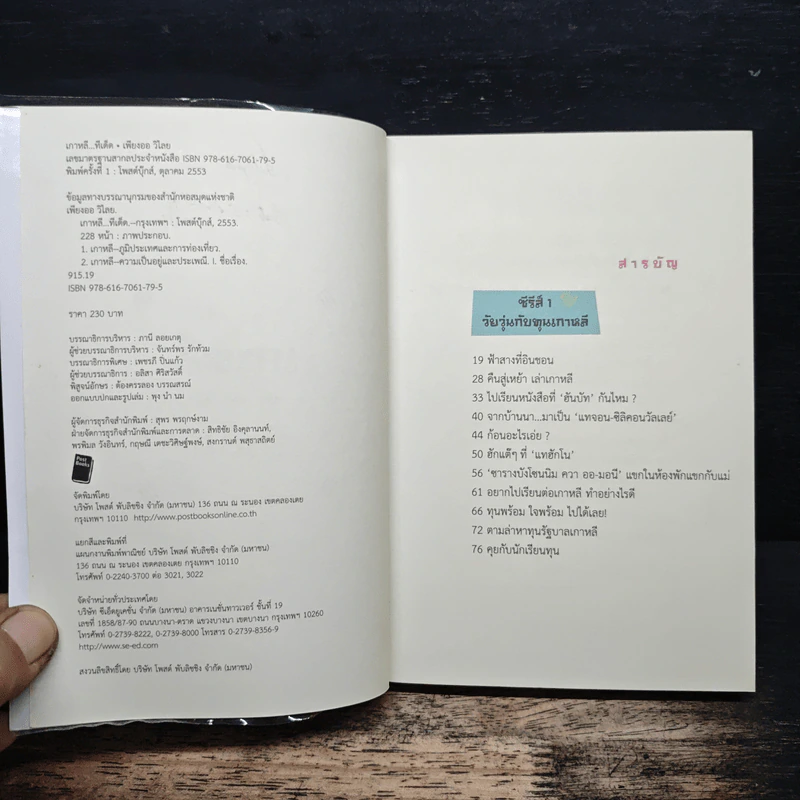 เกาหลี...ทีเด็ด • เพียงออ วิไลย
เลขมาตรฐานสากลประจำหนังสือ ISBN 978-616-7061-79-5
พิมพ์ครั้งที่ 1 : โพสต์บุ๊กส์, ตุลาคม 2553
ข้อมูลทางบรรณานุกรมของสำนักหอสมุดแห่งชาติ
เพียงออ วิไลย.
เกาหลี...ทีเด็ด.—กรุงเทพฯ : โพสต์บุ๊กส์, 2553.
228 หน้า : ภาพประกอบ.
1. เกาหลี—ภูมิประเทศและการท่องเที่ยว.
2. เกาหลี—ความเป็นอยู่และประเพณี. I. ชื่อเรื่อง.
915.19
ISBN 978-616-7061-79-5
ราคา 230 บาท
บรรณาธิการบริหาร : ภานี ลอยเกตุ
ผู้ช่วยบรรณาธิการบริหาร : จันทร์พร รักท้วม
บรรณาธิการพิเศษ : เพชรภี ปิ่นแก้ว
ผู้ช่วยบรรณาธิการ : อลิสา ศิริสวัสดิ์
พิสูจน์อักษร : ต้องครรลอง บรรณสรณ์
ออกแบบปกและรูปเล่ม : พุง นำ นม
ผู้จัดการธุรกิจสำนักพิมพ์ : สุพร พรฤกษ์งาม
ฝ่ายจัดการธุรกิจสำนักพิมพ์และการตลาด : สิทธิชัย อิงคุลานนท์,
พรพิมล วังอินทร์, กฤษณี เตชะวิศิษฐ์พงษ์, สงกรานต์ พสุธาสถิตย์
Post Books
จัดพิมพ์โดย
บริษัท โพสต์ พับลิชชิง จำกัด (มหาชน) 136 ถนน ณ ระนอง เขตคลองเตย
กรุงเทพฯ 10110 http://www.postbooksonline.co.th
แยกสีและพิมพ์ที่
แผนกงานพิมพ์พาณิชย์ บริษัท โพสต์ พับลิชชิง จำกัด (มหาชน)
136 ถนน ณ ระนอง เขตคลองเตย กรุงเทพฯ 10110
โทรศัพท์ 0-2240-3700 ต่อ 3021, 3022
จัดจำหน่ายทั่วประเทศโดย
บริษัท ซีเอ็ดยูเคชั่น จำกัด (มหาชน) อาคารเนชั่นทาวเวอร์ ชั้นที่ 19
เลขที่ 1858/87-90 ถนนบางนา-ตราด แขวงบางนา เขตบางนา กรุงเทพฯ 10260
โทรศัพท์ 0-2739-8222, 0-2739-8000 โทรสาร 0-2739-8356-9
http://www.se-ed.com
สงวนลิขสิทธิ์โดย บริษัท โพสต์ พับลิชชิง จำกัด (มหาชน)
สารบัญ
ซีรีส์ 1
วัยวุ่นกับทุนเกาหลี
19 ฟ้าสางที่อินชอน
28 คืนสู่เหย้า เล่าเกาหลี
33 ไปเรียนหนังสือที่ 'ฮันบัท' กันไหม ?
40 จากบ้านนา...มาเป็น 'แทจอน-ซิลิคอนวัลเลย์'
44 ก้อนอะไรเอ่ย ?
50 ฮักแต๊ๆ ที่ 'แทฮักโน'
56 'ซารางบังโซนนิม ควา ออ-มอนี' แขกในห้องพักแขกกับแม่
61 อยากไปเรียนต่อเกาหลี ทำอย่างไรดี
66 ทุนพร้อม ใจพร้อม ไปได้เลย!
72 ตามล่าหาทุนรัฐบาลเกาหลี
76 คุยกับนักเรียนทุน